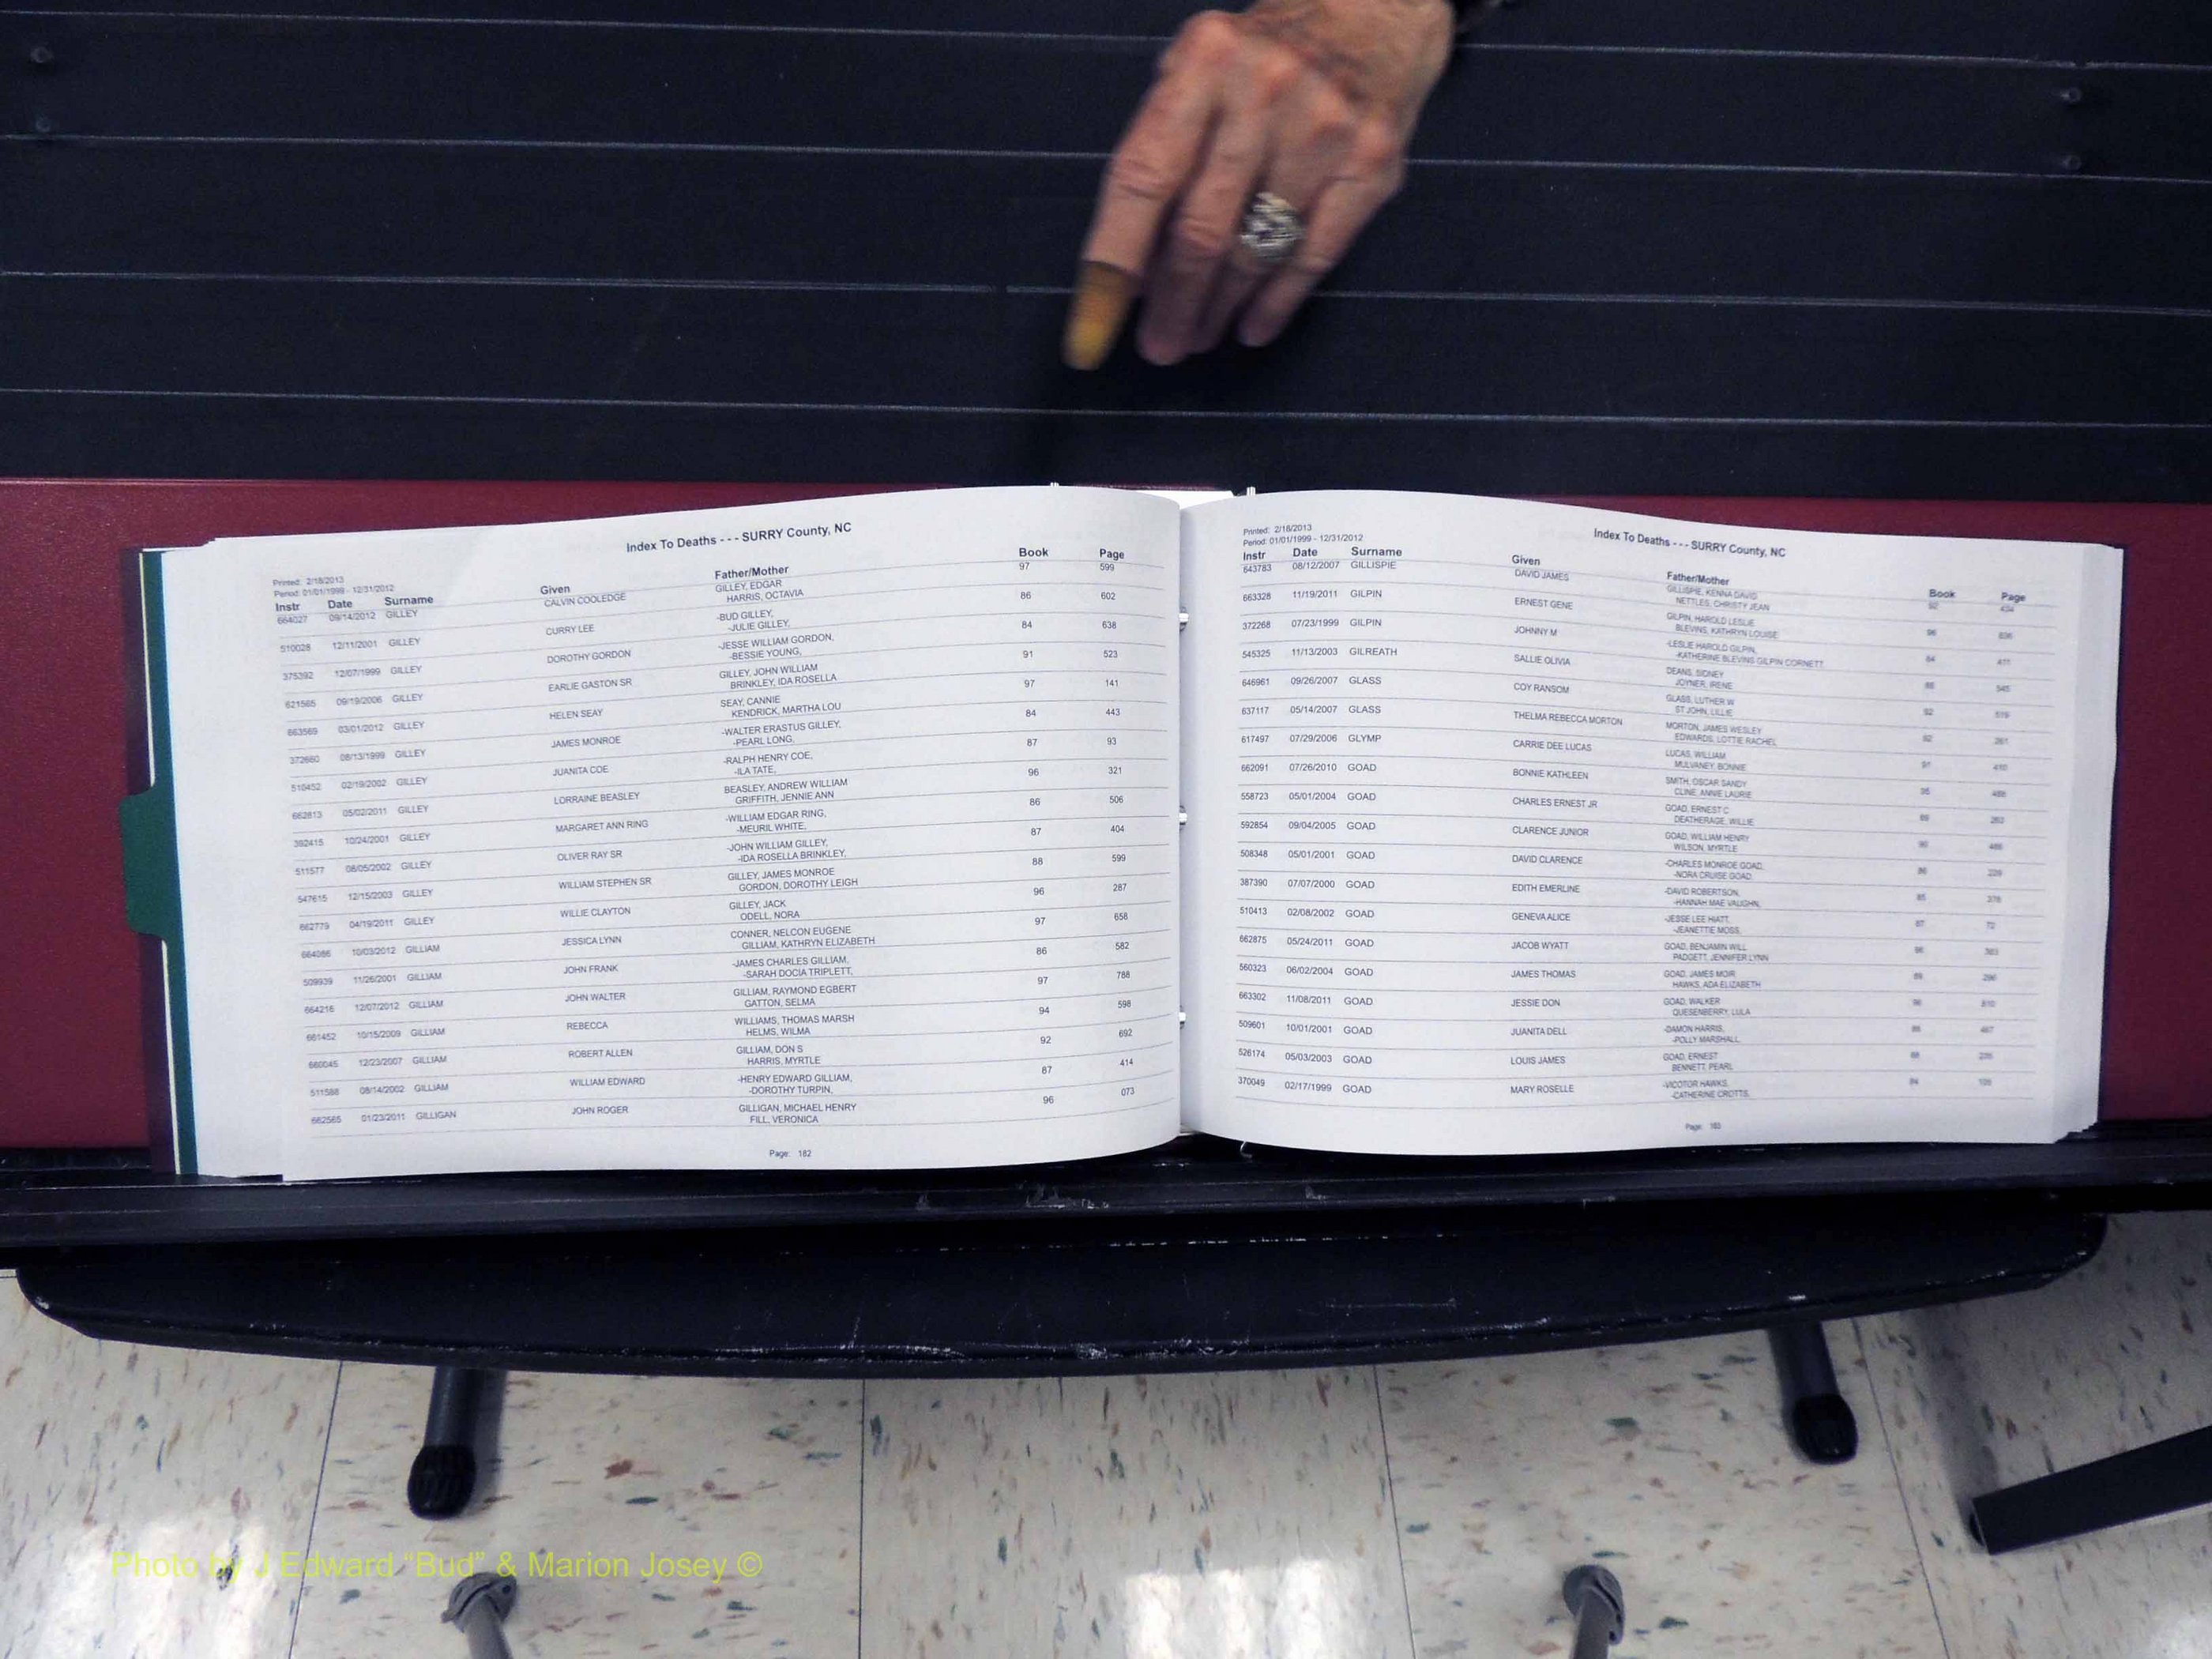 Index To Deaths - - - SURRY County, NC
Printed: 2/18/2013
Period: 01/01/1999 - 12/31/2012
Instr Date Surname Given Father/Mother Book Page
664027 09/14/2012 GILLEY CALVIN COOLEDGE GILLEY, EDGAR 97 599
HARRIS, OCTAVIA
510028 12/11/2001 GILLEY CURRY LEE -BUD GILLEY, 86 602
-JULIE GILLEY,
375392 12/07/1999 GILLEY DOROTHY GORDON -JESSE WILLIAM GORDON, 84 638
-BESSIE YOUNG,
621565 09/19/2006 GILLEY EARLIE GASTON SR GILLEY, JOHN WILLIAM 91 523
BRINKLEY, IDA ROSELLA
663569 03/01/2012 GILLEY HELEN SEAY SEAY, CANNIE 97 141
KENDRICK, MARTHA LOU
372660 08/13/1999 GILLEY JAMES MONROE -WALTER ERASTUS GILLEY, 84 443
-PEARL LONG,
510452 02/19/2002 GILLEY JUANITA COE -RALPH HENRY COE, 87 93
-ILA TATE,
662813 05/02/2011 GILLEY LORRAINE BEASLEY BEASLEY, ANDREW WILLIAM 96 321
GRIFFITH, JENNIE ANN
392415 10/24/2001 GILLEY MARGARET ANN RING -WILLIAM EDGAR RING, 86 506
-MEURIL WHITE,
511577 08/05/2002 GILLEY OLIVER RAY SR -JOHN WILLIAM GILLEY, 87 404
-IDA ROSELLA BRINKLEY,
547615 12/15/2003 GILLEY WILLIAM STEPHEN SR GILLEY, JAMES MONROE 88 599
GORDON, DOROTHY LEIGH
662779 04/19/2011 GILLEY WILLIE CLAYTON GILLEY, JACK 96 287
ODELL, NORA
664086 10/03/2012 GILLIAM JESSICA LYNN CONNER, NELCON EUGENE 97 658
GILLIAM, KATHRYN ELIZABETH
509939 11/26/2001 GILLIAM JOHN FRANK -JAMES CHARLES GILLIAM, 86 582
-SARAH DOCIA TRIPLETT,
664216 12/07/2012 GILLIAM JOHN WALTER GILLIAM, RAYMOND EGBERT 97 788
GATTON, SELMA
661452 10/15/2009 GILLIAM REBECCA WILLIAMS, THOMAS MARSH 94 598
HELMS, WILMA
660045 12/23/2007 GILLIAM ROBERT ALLEN GILLIAM, DON S 92 692
HARRIS, MYRTLE
511588 08/14/2002 GILLIAM WILLIAM EDWARD -HENRY EDWARD GILLIAM, 87 414
-DOROTHY TURPIN,
662565 01/23/2011 GILLIGAN JOHN ROGER GILLIGAN, MICHAEL HENRY 96 073
FILL, VERONICA
Page: 182
Printed: 2/18/2013
Period: 01/01/1999 - 12/31/2012
Index To Deaths - - - SURRY County, NC
Instr Date Surname Given Father/Mother Book Page
643783 08/12/2007 GILLISPIE DAVID JAMES GILLISPIE, KENNA DAVID 92 434
NETTLES, CHRISTY JEAN
663328 11/19/2011 GILPIN ERNEST GENE GILPIN, HAROLD LESLIE 96 836
BLEVINS, KATHRYN LOUISE
372268 07/23/1999 GILPIN JOHNNY M -LESLIE HAROLD GILPIN, 84 411
-KATHERINE BLEVINS GILPIN CORNETT
545325 11/13/2003 GILREATH SALLIE OLIVIA DEANS, SIDNEY 88 545
JOYNER, IRENE
646961 09/26/2007 GLASS COY RANSOM GLASS, LUTHER W 92 519
ST JOHN, LILLIE
637117 05/14/2007 GLASS THELMA REBECCA MORTON MORTON, JAMES WESLEY 92 261
EDWARDS, LOTTIE RACHEL
617497 07/29/2006 GLYMP CARRIE DEE LUCAS LUCAS, WILLIAM 91 410
MULVANEY, BONNIE
662091 07/26/2010 GOAD BONNIE KATHLEEN SMITH, OSCAR SANDY 95 488
CLINE, ANNIE LAURIE
558723 05/01/2004 GOAD CHARLES ERNEST JR GOAD, ERNEST C 89 263
DEATHERAGE, WILLIE
592854 09/04/2005 GOAD CLARENCE JUNIOR GOAD, WILLIAM HENRY 90 486
WILSON, MYRTLE
508348 05/01/2001 GOAD DAVID CLARENCE -CHARLES MONROE GOAD, 86 229
-NORA CRUISE GOAD,
387390 07/07/2000 GOAD EDITH EMERLINE -DAVID ROBERTSON, 85 376
-HANNAH MAE VAUGHN,
510413 02/08/2002 GOAD GENEVA ALICE -JESSE LEE HIATT, 87 72
-JEANETTE MOSS,
662875 05/24/2011 GOAD JACOB WYATT GOAD, BENJAMIN WILL 96 383
PADGETT, JENNIFER LYNN
560323 06/02/2004 GOAD JAMES THOMAS GOAD, JAMES MOIR 89 296
HAWKS, ADA ELIZABETH
663302 11/08/2011 GOAD JESSIE DON GOAD, WALKER 96 810
QUESENBERRY, LULA
509601 10/01/2001 GOAD JUANITA DELL -DAMON HARRIS, 86 467
-POLLY MARSHALL,
526174 05/03/2003 GOAD LOUIS JAMES GOAD, ERNEST 88 235
BENNETT, PEARL
370049 02/17/1999 GOAD MARY ROSELLE -VICOTOR HAWKS, 84 109
-CATHERINE CROTTS,
Page: 183
Photo by J Edward “Bud” & Marion Josey ©